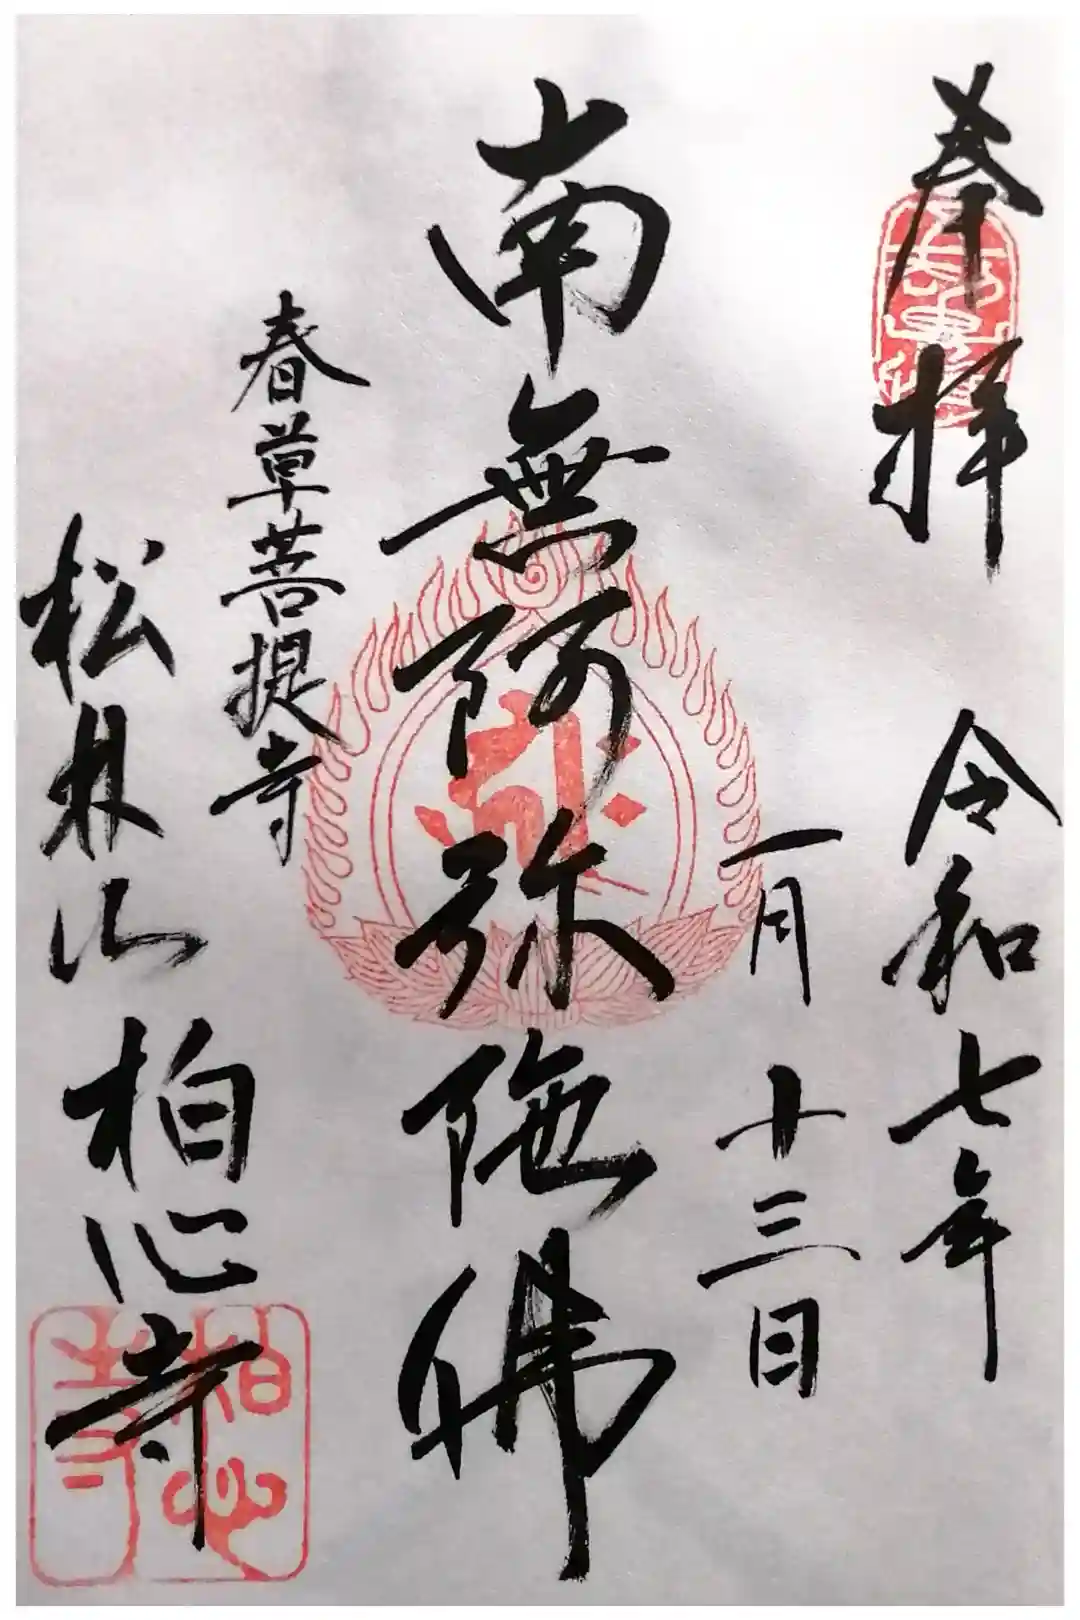 奉拝
令和七年
一月十三日
南無阿弥陀佛
春草菩提寺
松林山
柏心寺
柏心寺